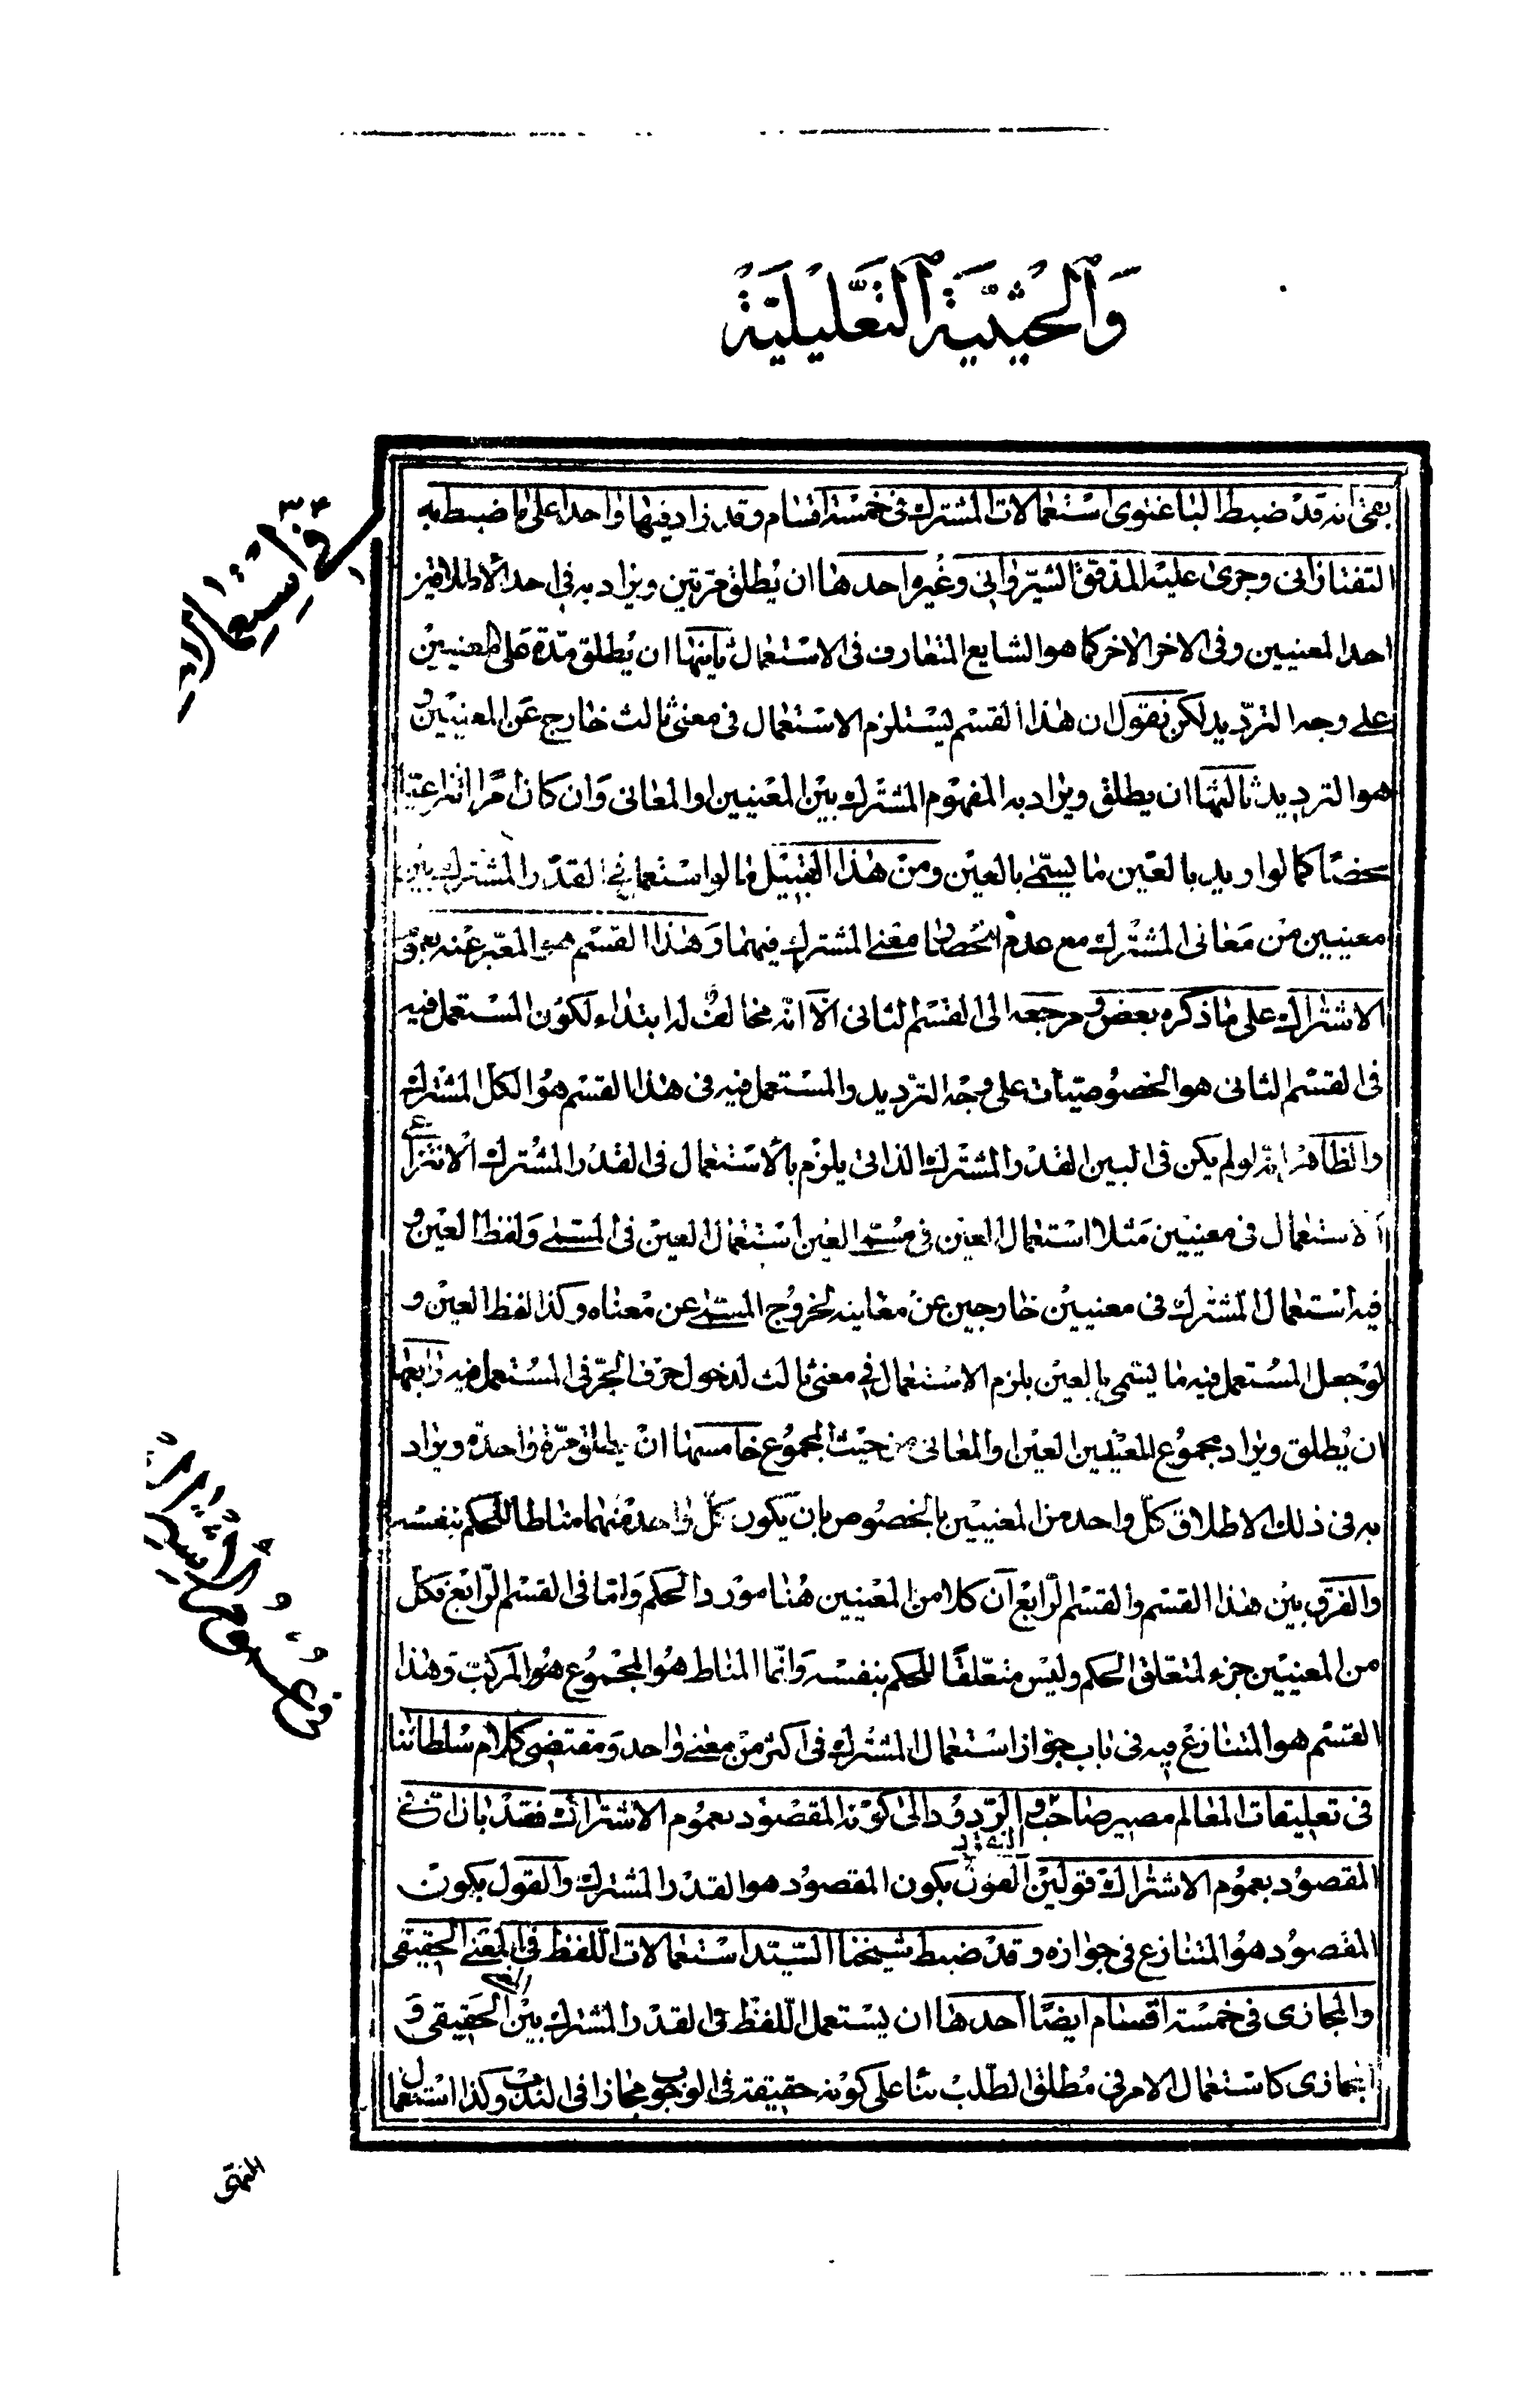 وَالْحَيْثِيَّةِ التَّعْلِيلِيَّةِ
٣٣
بقى انه قد ضبط الباغنوى استعمالات المشترك فى خمسة اقسام وقد زاد فيها واحدا على ما ضبط به
التفتازانى وجرى عليه المدقق الشيروانى وغيره احدها ان يطلق مرتين ويراد به فى احد الاطلاقين
احد المعنيين وفى الاخر الاخر كما هو الشايع المتعارف فى الاستعمال ثانيها ان يطلق مرة على المعنيين
على وجه الترديد لكن نقول ان هذا القسم يستلزم الاستعمال فى معنى ثالث خارج عن المعنيين و
هو الترديد ثالثها ان يطلق ويراد به المفهوم المشترك بين المعنيين او المعانى وان كان امرا انتزاعيا
محضا كما لو اريد بالعين ما يسمى بالعين ومن هذا القبيل ما لو استعمل فى القدر المشترك بين
معنيين من معانى المشترك مع عدم انحصار معنى المشترك فيهما وهذا القسم هو المعبر عنه بعموم
الاشتراك على ما ذكره بعض ومرجعه الى القسم الثانى الا انه مخالف له ابتداء لكون المستعمل فيه
فى القسم الثانى هو الخصوصيات على وجه الترديد والمستعمل فيه فى هذا القسم هو الكل المشترك
والظاهر انه لو لم يكن فى البين القدر المشترك الذاتى يلزم بالاستعمال فى القدر المشترك الانتزاعى
الاستعمال فى معنيين مثلا استعمال العين فى مسمى العين استعمال العين فى المسمى ولفظ العين و
فيه استعمال المشترك فى معنيين خارجين عن معانيه لخروج المسمى عن معناه وكذا لفظ العين و
لو جعل المستعمل فيه ما يسمى بالعين يلزم الاستعمال فى معنى ثالث لدخول حرف الجر فى المستعمل فيه رابعها
ان يطلق ويراد مجموع المعنيين او المعانى من حيث المجموع خامسها ان يطلق مرة واحدة ويراد
به فى ذلك الاطلاق كل واحد من المعنيين بالخصوص بان يكون كل واحد منهما مناطا للحكم بنفسه
والفرق بين هذا القسم والقسم الرابع ان كلا من المعنيين هنا مورد الحكم واما فى القسم الرابع فكل
من المعنيين جزء لمتعلق الحكم وليس متعلقا للحكم بنفسه وانما المناط هو المجموع هو المركب وهذا
القسم هو المتنازع فيه فى باب جواز استعمال المشترك فى اكثر من معنى واحد ومقتضى كلام سلطاننا
فى تعليقات المعالم مصير صاحب الردود الى كون المقصود بعموم الاشتراك فقد بان ان فى
المقصود بعموم الاشتراك قولين القول بكون المقصود هو القدر المشترك والقول بكون
المقصود هو المتنازع فى جوازه وقد ضبط شيخنا السيد استعمالات اللفظ فى المعنى الحقيقى
والمجازى فى خمسة اقسام ايضا احدها ان يستعمل اللفظ فى القدر المشترك بين الحقيقى و
المجازى كاستعمال الامر فى مطلق الطلب بناء على كونه حقيقة فى الوجوب مجازا فى الندب وكذا استعمال